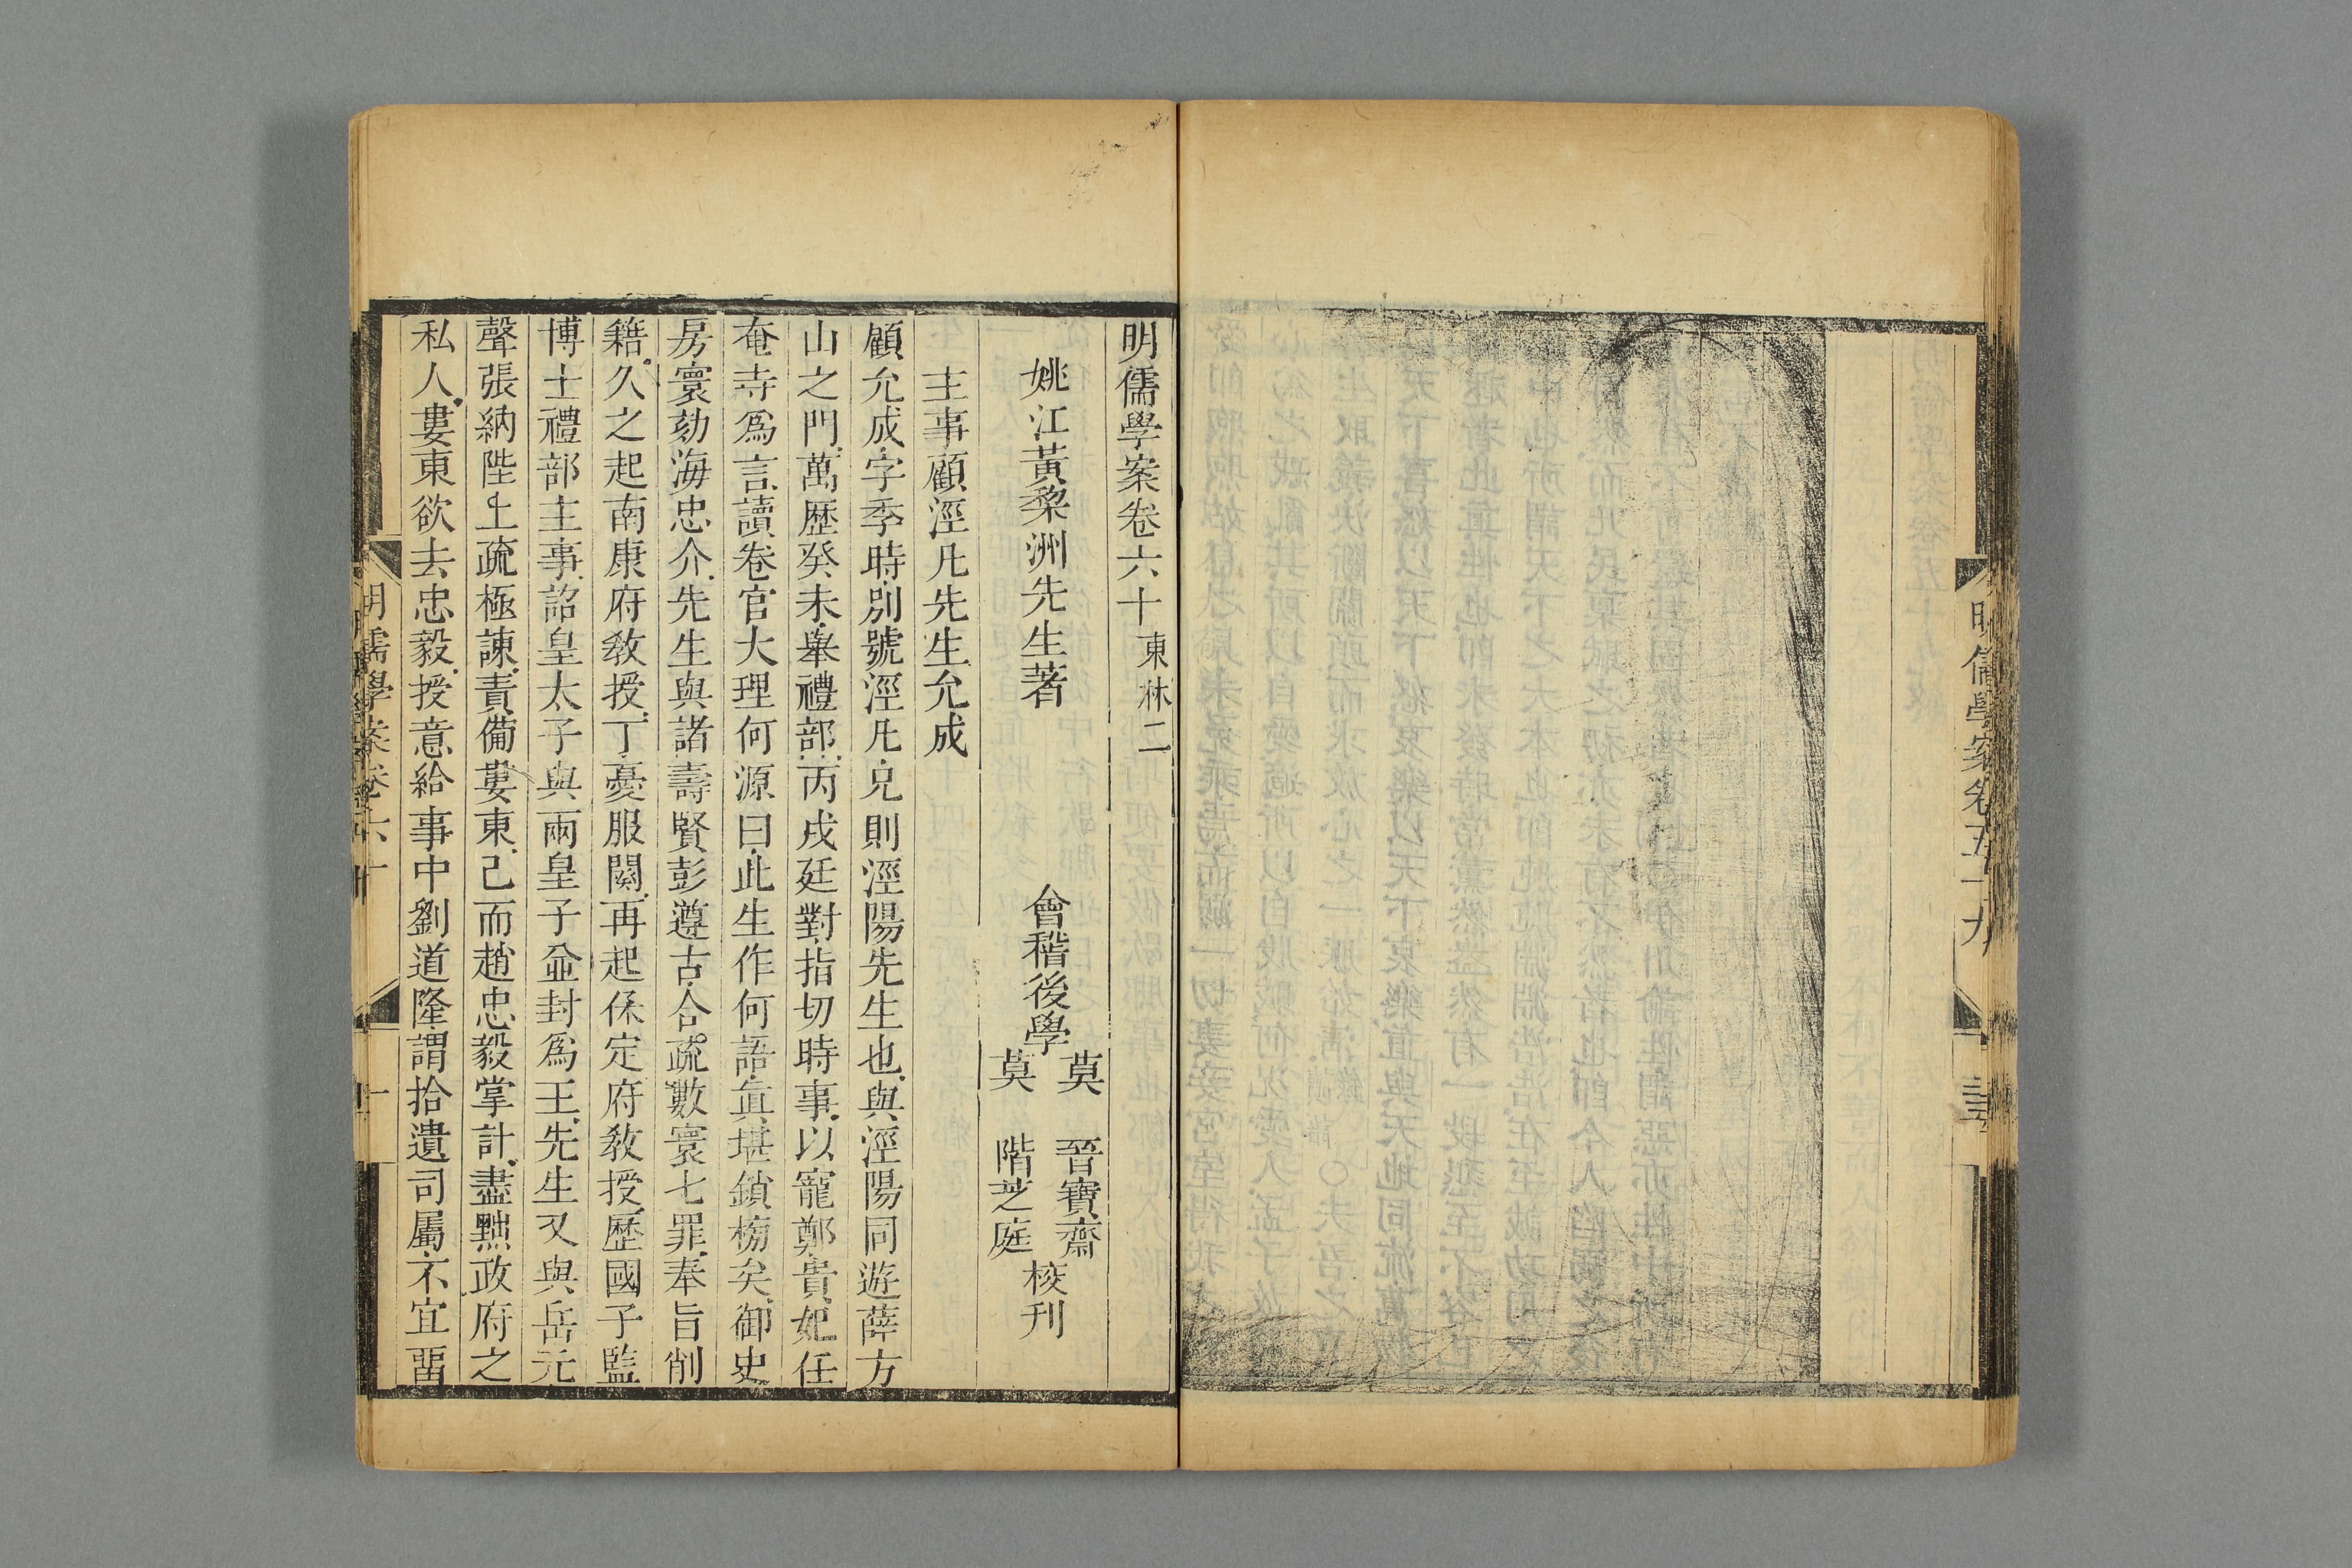 明儒學案卷五十九
明儒學案卷六十 東林二
姚江黃棃洲先生著
會稽後學
莫 晉寶齋
莫 階芝庭
校刊
主事顧涇凡先生允成
顧允成字季時別號涇凡兄則涇陽先生也與涇陽同遊薛方
山之門萬歷癸未舉禮部丙戌廷對指切時事以寵鄭貴妃任
奄寺爲言讀卷官大理何源曰此生作何語眞堪鎖榜矣御史
房寰劾海忠介先生與諸壽賢彭遵古合疏數寰七罪奉旨削
籍久之起南康府教授丁憂服闋再起保定府教授歷國子監
博士禮部主事詔皇太子與兩皇子並封爲王先生又與岳元
聲張納陛上疏極諫責備婁東已而趙忠毅掌計盡黜政府之
私人婁東欲去忠毅授意給事中劉道隆謂拾遺司屬不宜畱
明儒學案卷六十
一